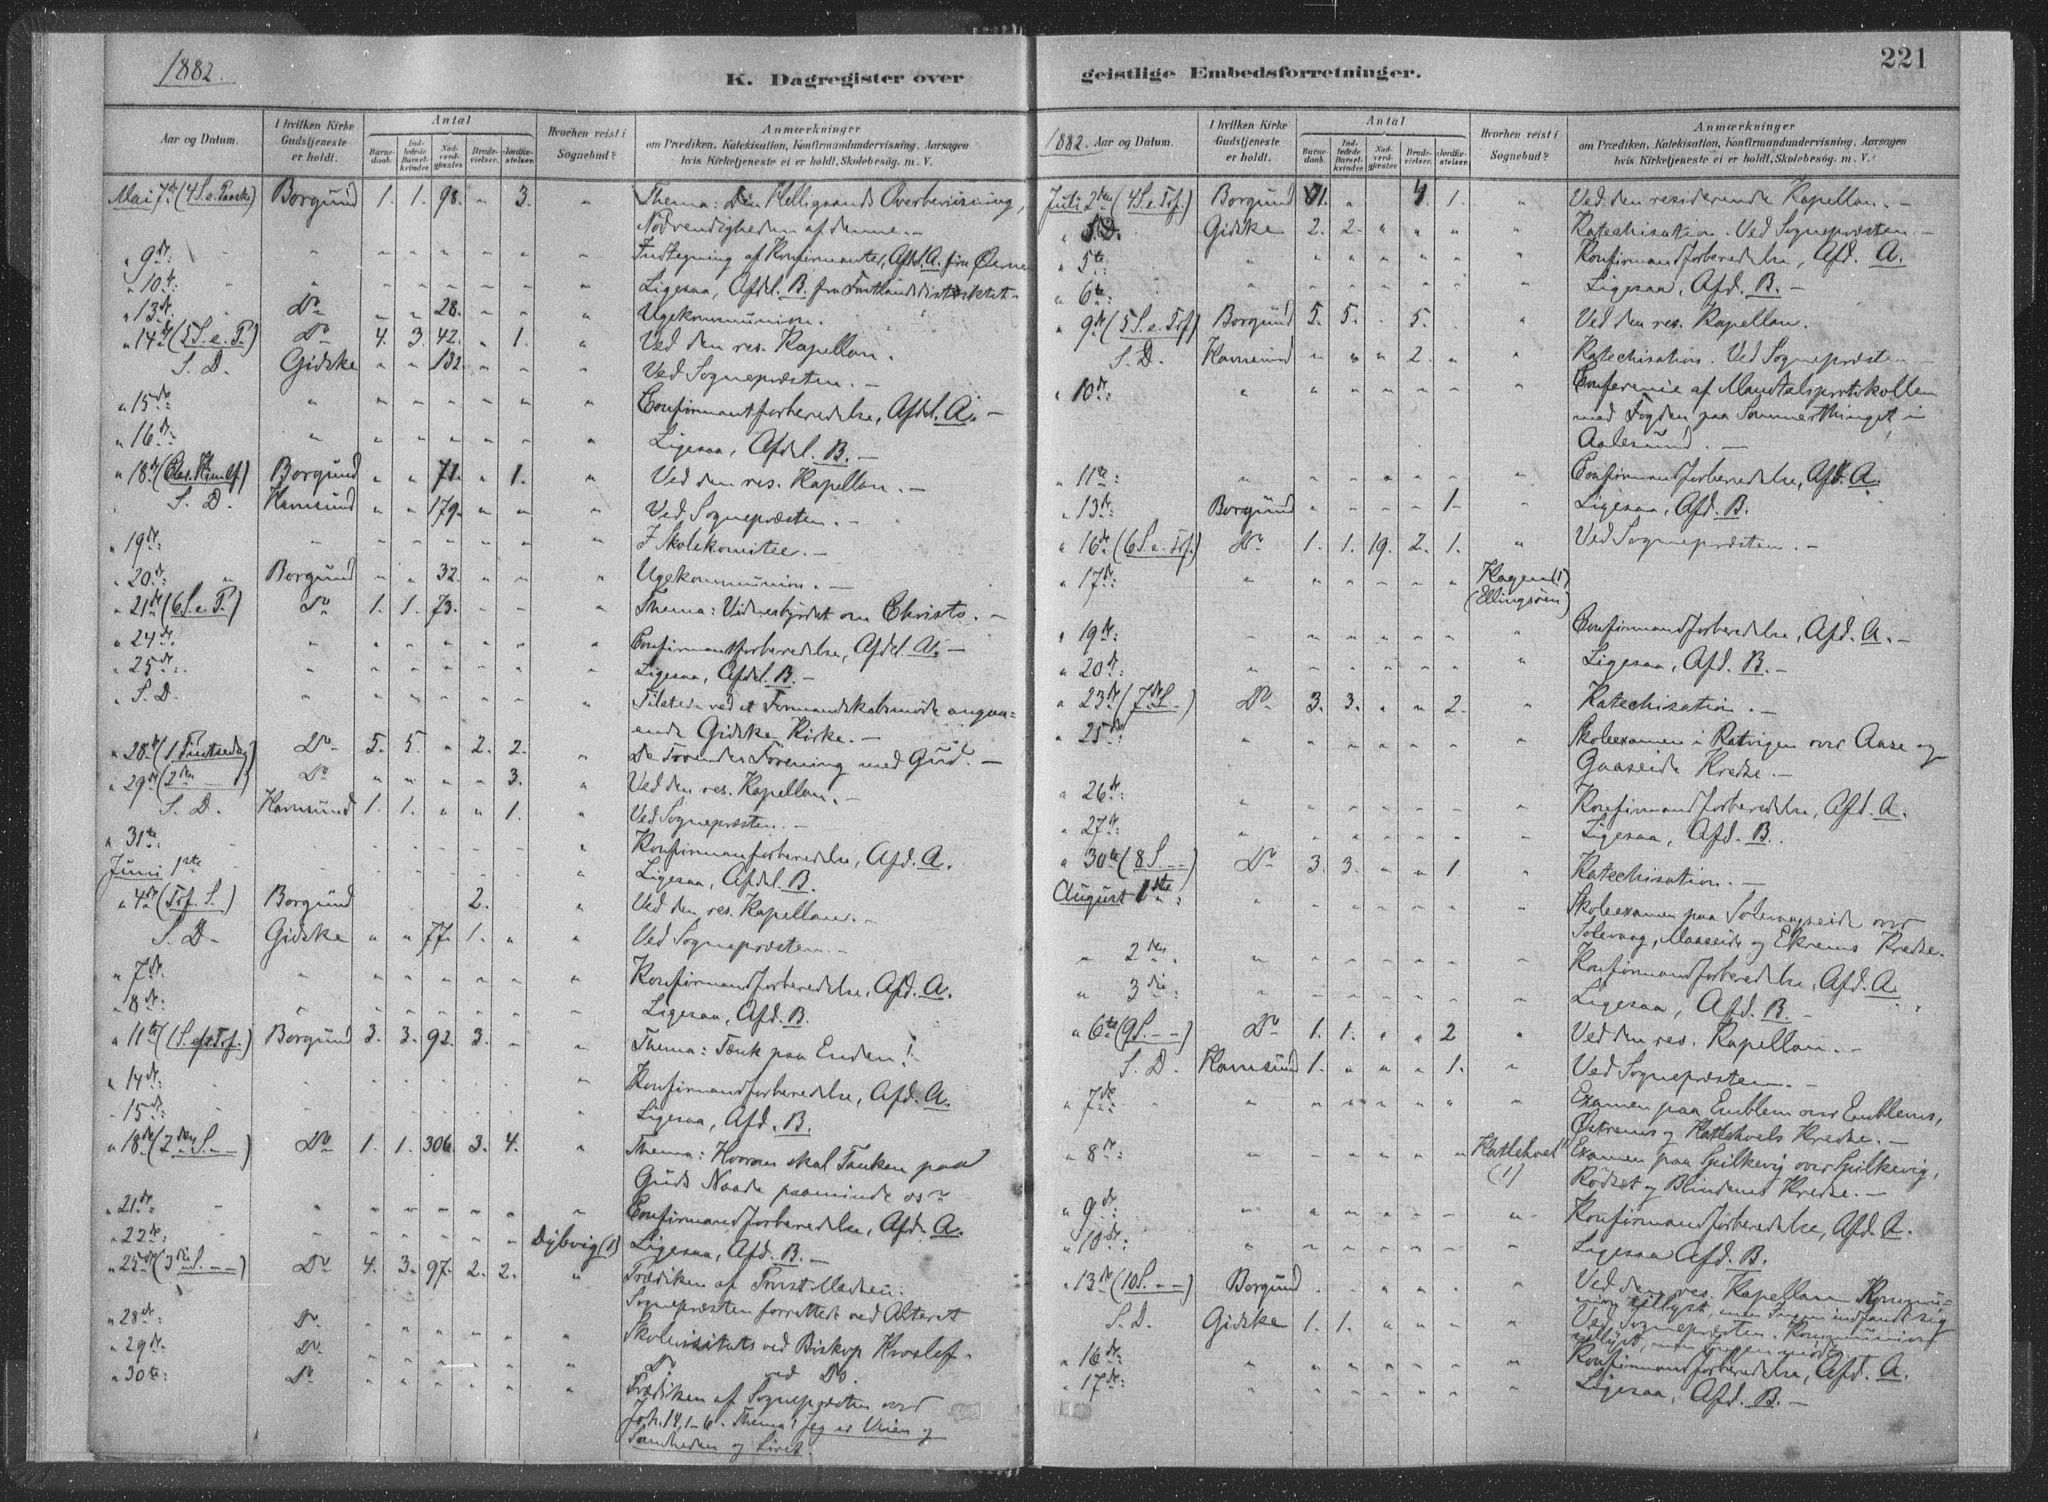 1882.
K. Dagregister over
Aar og Datum.
I hvilken Kirke Gudstjeneste er holdt.
Antal
Barnedaab. Indledede Barselkvinder. Nadverdgjæster. Brudevielser. Jordfæstelser.
Hvorhen reist i Sognebud?
Anmærkninger
om Prædiken, Katekisation, Konfirmandundervisning, Aarsagen
hvis Kirketjeneste ei er holdt, Skolebesög. m. V.
Mai 7de (4 S. e. Paaske) Borgund 1. 1. 98. " 3. " Thema: Den Helligaands Overbevisning,
Nødvendigheden af denne. –
" 9de: Indtegning af Konfirmanter, Afdl. A. fra Øerne
" 10de: Ligesaa, Afdel. B. fra Fastlandsdistriktet –
" 13de: Do " " 28. " " " Ugekommunion.
" 14de (5 S. e. P.) Do 4. 3. 42. " 1. " Ved den res. Kapellan.
S. D. Gidske " " 132. " " " Ved Sognepræsten. –
" 15de: Confirmantforberedelse, Afdel. A. –
" 16de: Ligesaa, Afdel. B. –
" 18de (Chr. Himlf) Borgund " " 71. " 1. " Ved den res. Kapellan. –
S. D. Hamsund " " 179. " " " Ved Sognepræsten. –
" 19de: I Skolekomitee. –
" 20de: Borgund " " 32. " " " Ugekommunion. –
" 21de (6 S. e. P.) Do 1. 1. 73. " " " Thema: Vidnesbyrdet om Christo. –
" 24de: Confirmantforberedelse, Afdel. A. –
" 25de: Ligesaa, Afdel. B. –
" S. D. Tilstede ved et Formandskabsmøde angaa-
ende Gidske Kirke. –
" 28de (1. Pintsedag) Do 5. 5. " 2. 2. " De Troendes Forening med Gud. –
" 29de (2den —) Do " " " " 3. " Ved den res. Kapellan. –
S. D. Hamsund 1. 1. " " 1. " Ved Sognepræsten. –
" 31te: Konfirmanforberedelse, Afd. A.
Juni 1ste Ligesaa, Afdel. B.
" 4de (Tref. S.) Borgund 2. " Ved den res. Kapellan. –
S. D. Gidske " " 77. 1. " " Ved Sognepræsten. –
" 7de: Konfirmandforberedelse, Afd. A.
" 8de: Ligesaa, Afd. B.
" 11te (1 S. ef. Tref.) Borgund 3. 3. 92. 3. " " Thema: Tænk paa Enden!
" 14de: Konfirmandforberedelse, Afd. A.
" 15de: Ligesaa, Afd. B.
" 18de (2den S. – –) Do 1. 1. 306. 3. 4. " Thema: Hvorom skal Tanken paa
Guds Naade paaminde os?
" 21de: Confirmandforberedelse, Afd. A.
" 22de: Dybvig (1) Ligesaa, Afd. B. –
" 25de (3die S. – –) Do 4. 3. 97. 2. 2. " Prædiken af Provst
Sognepræsten forrettede ved Alteret
" 28de: Do Skolevisitats ved Biskop
" 29de: Do Do ved Do.
" 30te: Do Prædiken af Sognepræsten over
Joh. 14, 1–6. Thema: Jeg er Veien og
Sandheden og Livet.
geistlige Embedsforretninger.
221
1882. Aar og Datum.
I hvilken Kirke Gudstjeneste er holdt.
Antal
Barnedaab. Indledede Barselkvinder. Nadverdgjæster. Brudevielser. Jordfæstelser.
Hvorhen reist i Sognebud?
Anmærkninger
om Prædiken, Katekisation, Konfirmandundervisning, Aarsagen
hvis Kirketjeneste ei er holdt, Skolebesög. m. V.
Juli 2den (4 S. e. Tref.) Borgund 1. " 4. 1. " Ved den residerende Kapellan. –
" S. D. Gidske 2. 2. " " " " Katechisation. Ved Sognepræsten. –
" 5te: Konfirmandforberedelse, Afd. A.
" 6te: Ligesaa, Afd. B. –
" 9de (5 S. e. Tref.) Borgund 5. 5. 5. " Ved den res. Kapellan.
S. D. Hamsund " " " 2. " " Katechisation. Ved Sognepræsten
" 10de: Conference af Mandtalsprotokollen
med Fogden paa Sommerthinget i
Aalesund. –
" 11te: Confirmandforberedelse, Afd. A.
" 13de: Borgund " " " " 1. " Ligesaa, Afd. B.
" 16de (6 S. e. Tref.) Do 1. 1. 19. 2. 1. " Ved Sognepræsten. –
" 17de: Hagen (1)
(Ellingsøen)
" 19de: Confirmandforberedelse, Afd. A. –
" 20de: Ligesaa, Afd. B. –
" 23de (7de S. –) Do 3. 3. " " 2. " Katechisation. –
" 25de: Skoleexamen i Ratvigen over Aase og
Gaaseide Kredse. –
" 26de: Konfirmandforberedelse, Afd. A.
" 27de: Ligesaa, Afd. B.
" 30te (8 S. – –) Do 3. 3. " " 1. " Katechisation. –
August 1ste: Skoleexamen paa Solevaagseide over
Solevaag, Maaseide og Ekrems Kredse.
" 2den: Konfirmandforberedelse, Afd. A.
" 3die: Ligesaa, Afd. B. –
" 6te (9 S. – –) Do 1. 1. " " 2 " Ved den res. Kapellan. –
S. D. Hamsund 1. " " " 1. " Ved Sognepræsten. –
" 7de: Examen paa Emblem over Emblems,
Østrems og Hatlehols Kredse. –
" 8de: Hatlehol (1) Examen paa Spilkevig over Spilkevig,
Rødset og Blindems Kredse. –
" 9de: Konfirmandforberedelse, Afd. A.
" 10de: Ligesaa Afd. B.
" 13de (10 S. – –) Borgund Ved den res. Kapellan Kommu-
nion tillyst men Ingen indfandt sig
S. D. Gidske 1. 1. " " " Ved Sognepræsten. Kommunion
tillyst, men Ingen mødte
" 16de: Konfirmandforberedelse, Afd. A.
" 17de: Ligesaa, Afd. B. –